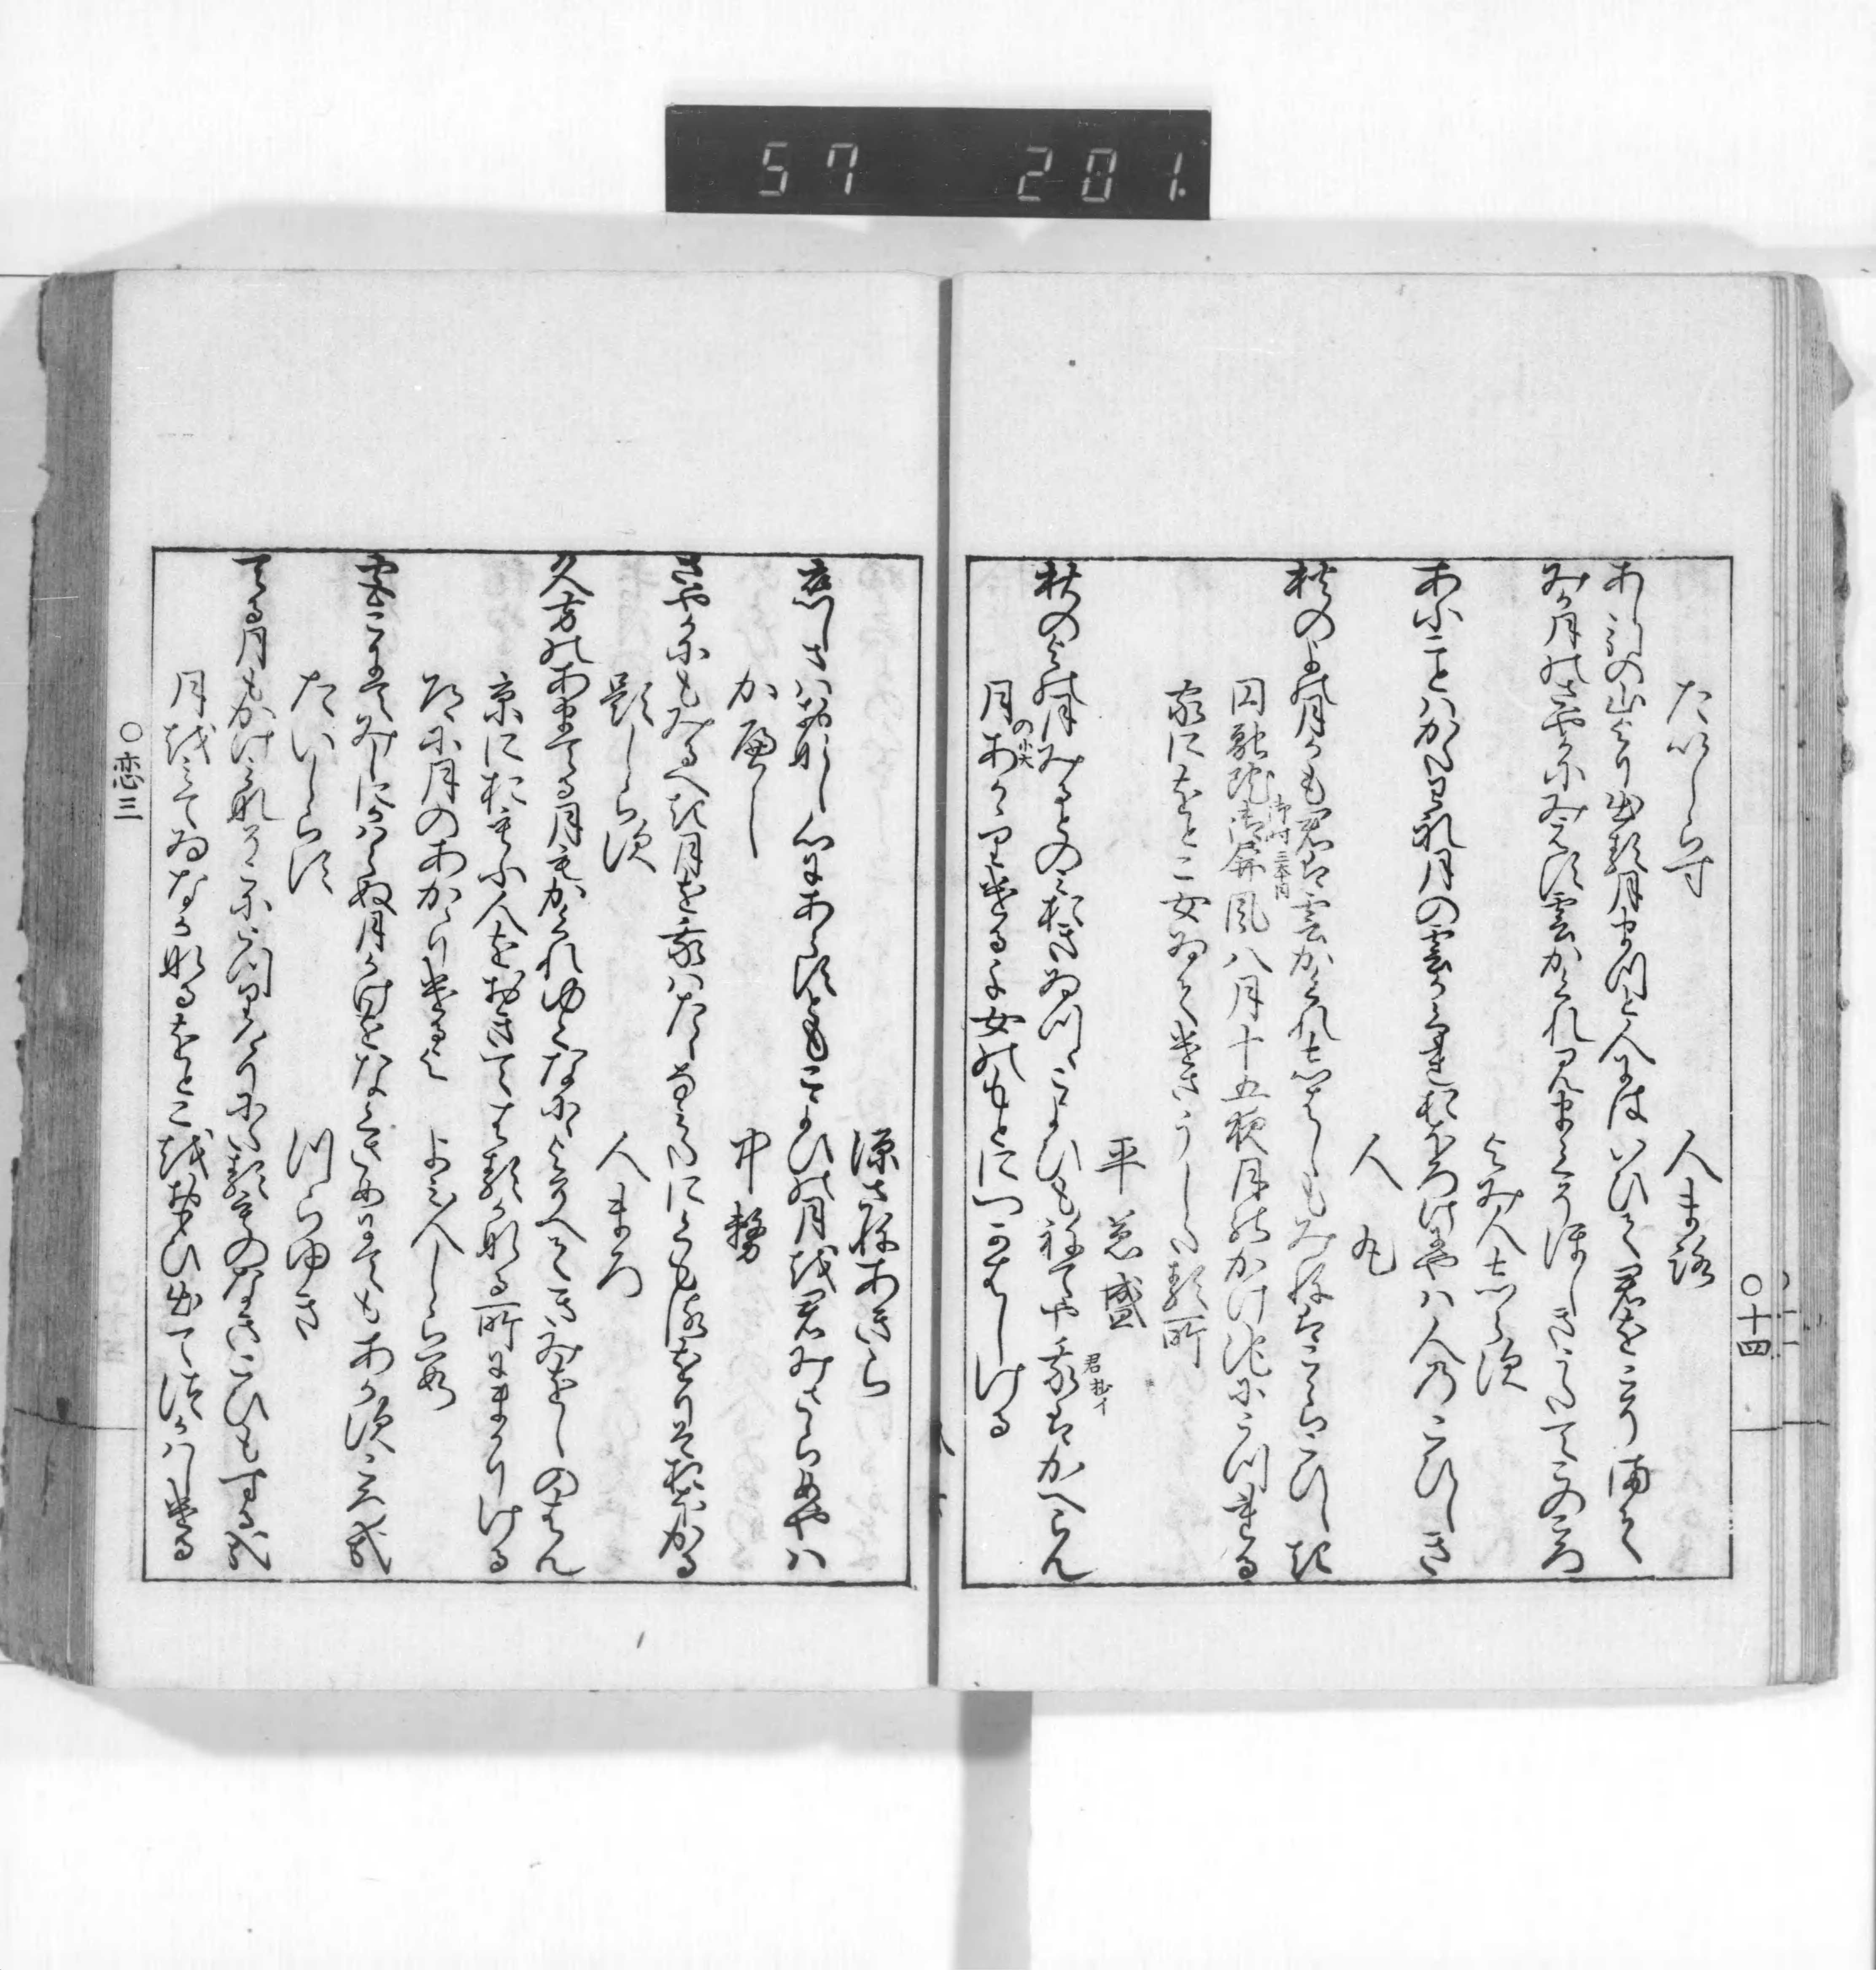 57 201.
〇十四
たいしらす 人まろ
あし引の山より出る月まつと人にはいひて君をこそまて
みか月のさやかにみえす雲かくれ見まくそほしきうたてこのころ
よみ人しらす
あふことはかたわれ月の雲かくれおほろけにやは人のこひしき
人丸
秋のよの月かも君は雲かくれしはしもみねはこゝらこひしき
円融院御時御屏風八月十五夜月のかけ池にうつれる
家にをとこ女ゐてけさうしたる所
平兼盛
秋のよの月みるとのみおきゐつゝこよひもねてや我はかへらん
君抄イ
月のあかゝりける夜女のもとにつかはしける
源さねあきら
恋しさはおなし心にあらすともこよひの月を君みさらめや
かへし 中務
さやかにもみるへき月を我はたゝなみたにくもるをりそおほかる
題しらす 人まろ
久方のあまてる月もかくれゆくなにゝよそへてきみをしのはん
京におもふ人をおきてはるかなる所にまかりける
道に月のあかゝりける夜 よみ人しらす
宮こにてみしにかはらぬ月かけをなくさめにてもあかす比哉
たいしらす つらゆき
てる月もかけみなそこにうつりけりにたる物なきこひもするかな
月をみてゐなかなるをとこをおもひ出てつかはしける
〇恋三